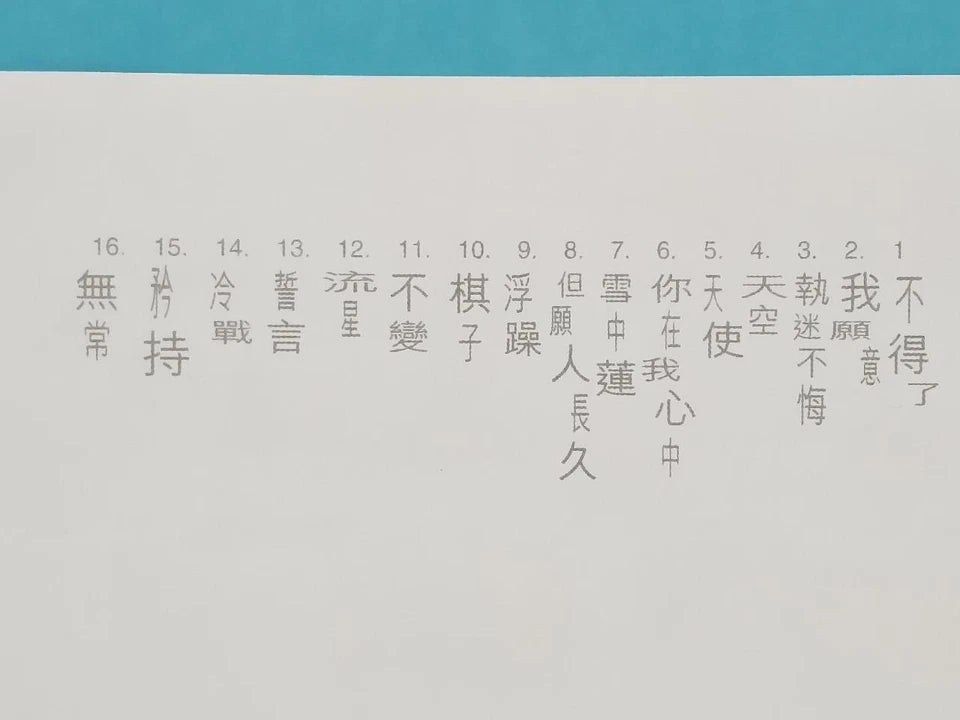 1 不得了
2. 我願意
3. 執迷不悔
4. 天空
5. 天使
6. 你在我心中
7. 雪中蓮
8. 但願人長久
9. 浮躁
10. 棋子
11. 不變
12. 流星
13. 誓言
14. 冷戰
15. 矜持
16. 無常